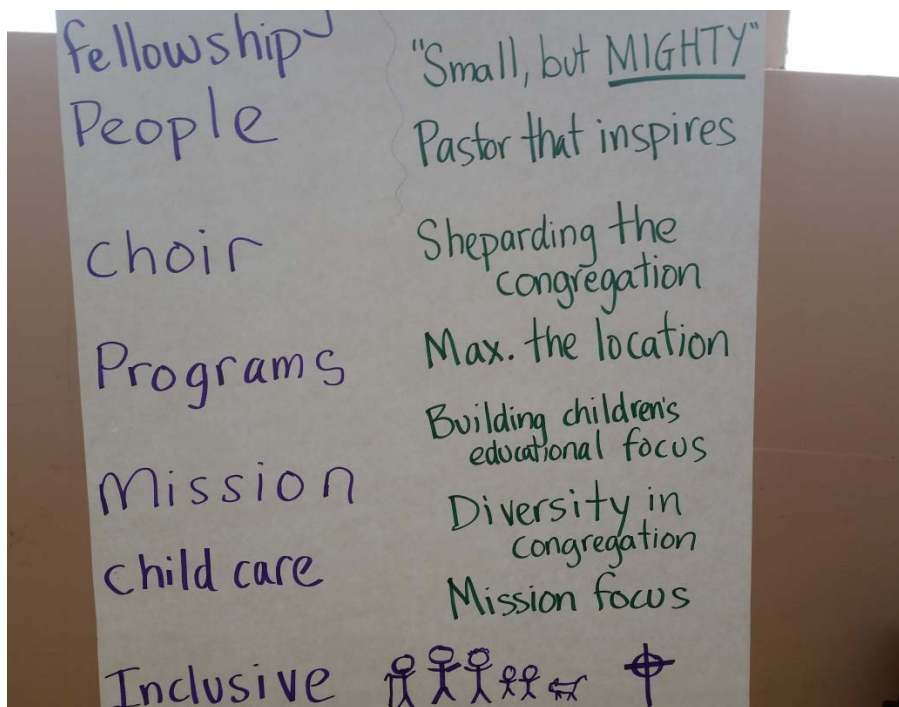 fellowship
People
choir
Programs
Mission
child care
Inclusive
"Small, but MIGHTY"
Pastor that inspires
Sheparding the
congregation
Max. the location
Building children's
educational focus
Diversity in
congregation
Mission focus